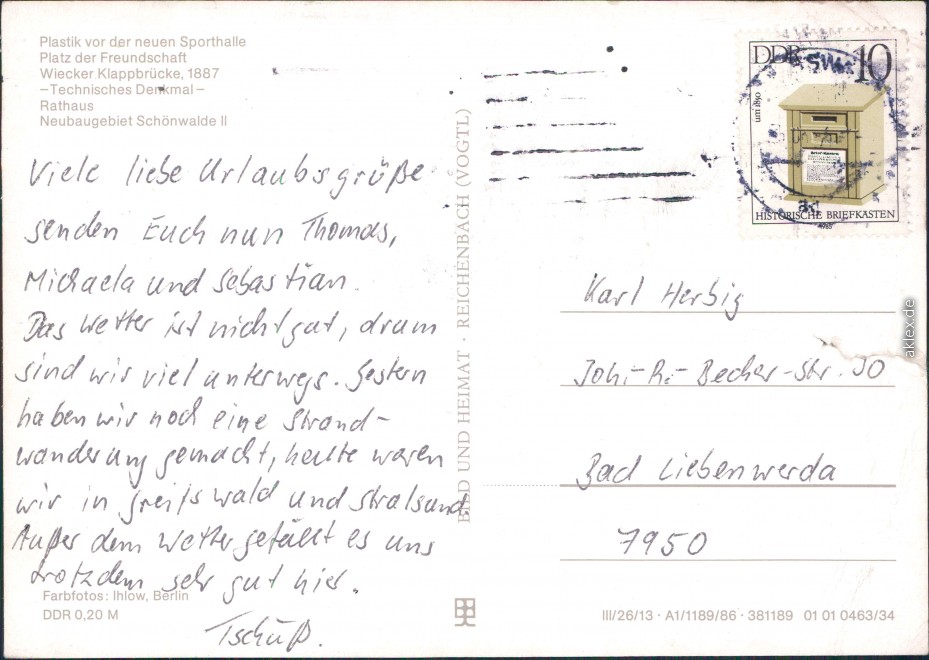 Plastik vor der neuen Sporthalle
Platz der Freundschaft
Wiecker Klappbrücke, 1887
—Technisches Denkmal—
Rathaus
Neubaugebiet Schönwalde II
Viele liebe Urlaubsgrüße
senden Euch nun Thomas,
Michaela und Sebastian.
Das Wetter ist nicht gut, drum
sind wir viel unterwegs. Gestern
haben wir noch eine Strand-
wanderung gemacht, heute waren
wir in Greifswald und Stralsund.
Außer dem Wetter gefällt es uns
trotzdem sehr gut hier.
Tschüß.
Farbfotos: Ihlow, Berlin
DDR 0,20 M
BILD UND HEIMAT · REICHENBACH (VOGTL)
DDR 10
um 1890
HISTORISCHE BRIEFKASTEN
1985
Karl Herbig
Joh.-R.-Becher-Str. 50
Bad Liebenwerda
7950
III/26/13 · A1/1189/86 · 381189 01 01 0463/34
aklex.de